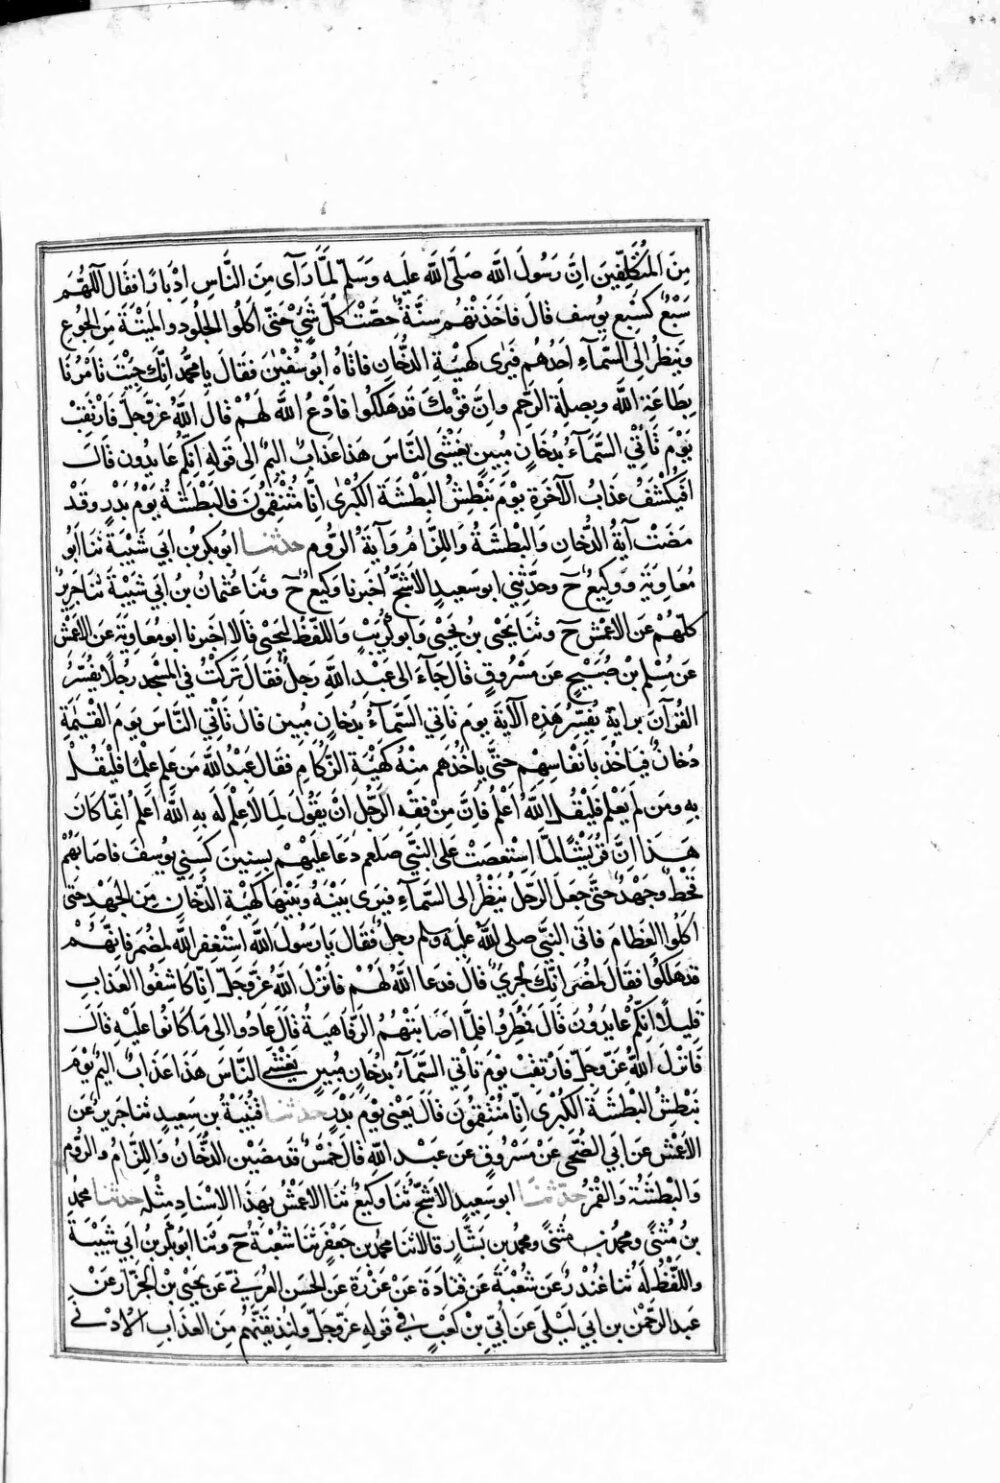 مِنَ الْمُتَكَلِّفِينَ اِنَّ رَسُولَ الله صَلَّى الله عَلَيهِ وَسَلَّمَ لَمَّا رَآى مِنَ النَّاسِ اِدْبَارًا فقَال اَللّٰهُمَّ
سَبْعٌ كَسَبْعِ يُوسف قالَ فاَخَذَتْهُم سَنَةٌ حَصَّتْ كُلَّ شَيْءٍ حَتَّى اَكَلُوا الجلُودَ والميْتَةَ مِنَ الجُوعِ
وينظُرُ اِلَى السَّمَآءِ اَحَدُهُم فَيَرى كهَيْئةِ الدُّخَانِ فاتَاهُ ابُو سُفيٰنَ فقَالَ يا مُحَمَّدُ اِنَّكَ جِئْتَ تاْمُرُنَا
بِطَاعَةِ الله وَبِصِلَةِ الرَّحِمِ وَاِنَّ قَوْمَكَ قَد هَلَكُوا فَادْعُ الله لَهُمْ قالَ اللهُ عَزَّ وَجَلَّ فَارْتَقِبْ
يَوْمَ تَأتي السَّمَآءُ بِدُخَانٍ مُبِينٍ يَغْشَى النَّاسَ هَذا عَذابٌ اليمٌ اِلى قَولِهِ اِنَّكُم عَايدُون قَالَ
اَفَيُكْشَفُ عَذابُ الآخرَةِ يَوْمَ نَبْطِشُ البَطْشَةَ الكُبْرٰى اِنَّا مُنْتَقِمُونَ فالبَطْشَةُ يَوْمُ بَدْرٍ وقَدْ
مَضَتْ آيَةُ الدُّخَانِ وَالبْطشَةُ وَاللِّزَامُ وَآيَةُ الرُّومِ حدثنا ابوبكر بن ابي شَيْبَةَ ثنَا ابُو
مُعَاوِيَةَ وَوكِيعٌ ح وحَدَّثَنِي ابو سَعِيدٍ الاَشَجُّ اَخبرنا وكيع ح وثنا عُثمانُ بنُ ابي شَيْبَةَ ثنَا جَرِيرٌ
كلّهُم عَنِ الاعمش ح وثنَا يَحيى بنُ يَحْيَى وَابو كُرَيبٍ وَاللّفظُ ليحيى قَالاَ اخبرنا ابو مُعَاوِيَة عَنِ الاَعمش
عَن مُسْلِم بنِ صُبَيْحٍ عَن مَسْرُوقٍ قالَ جَآءَ الى عَبْدِ اللهِ رَجلٌ فقالَ تَرَكتُ في المسْجد رَجُلاً يُفَسِّرُ
القُرآنَ برأيهِ يُفَسِّرُ هَذِهِ الآيَةَ يومَ تَأتي السَّمَآءُ بِدُخانٍ مُبين قالَ يَأتي النَّاسَ يَومَ القِيٰمَةِ
دُخَانٌ فَياَخُذُ بِاَنفَاسِهِم حتَّى يَاخُذَهُم مِنْهُ كَهَيْئَةِ الزُّكَامِ فقَالَ عَبْدُ الله مَن عَلِمَ عِلماً فَلْيَقُلْ
بِهِ وَمَن لَم يَعْلَم فَليَقُلْ اَللهُ اَعْلمُ فاِنَّ مِنْ فِقْهِ الرَّجُلِ اَنْ يَقُولَ لِمَا لاَ عِلْمَ لَه بِهِ اللهُ اَعلَمُ اِنَّمَا كَانَ
هَذَا اَنَّ قُرَيْشًا لَمَّا اسْتَعْصَتْ عَلَى النَّبِيّ صلعم دَعَا عَلَيْهِمْ بِسِنِينَ كَسِنِي يُوسفَ فَاَصَابَهُمْ
قَحْطٌ وجَهْدٌ حتَّى جَعَلَ الرَّجُلُ يَنْظُرُ اِلى السَّمَآءِ فَيَرَى بَيْنَهُ وبَيْنَهَا كَهَيْئةِ الدُّخَانِ مِنَ الجَهْدِ حَتى
اَكَلُوا العِظَامَ فَاَتَى النَّبِيَّ صلى اللهُ عَلَيهِ وسلم رجلٌ فقَالَ يَا رسُولَ اللهِ اسْتَغْفِرِ اللهَ لِمُضَرَ فَاِنَّهُمْ
قد هَلكُوا فقالَ لِمُضَرَ اِنَّكَ لَجَرِيٌّ قالَ فدعَا اللهُ لَهُمْ فَانْزَلَ اللهُ عَزَّوَجَلَّ اِنَّا كَاشِفُوا العَذَابِ
قَلِيلاً اِنَّكُم عَايدُونَ قالَ فَمُطِرُوا فلمَّا اصَابَتْهُم الرَّفَاهيَةُ قالَ عادُوا الى مَا كَانُوا عَلَيْهِ قَالَ
فَانْزَلَ اللهُ عَزَّ وجلَّ فَارْتَقِبْ يَوْمَ تَأتي السَّمَآءُ بِدُخَانٍ مُبِينٍ يَغْشَى النَّاسَ هَذَا عَذَابٌ اليمٌ يَوْمَ
نَبْطِشُ البَطْشَةَ الكُبْرَى اِنَّا مُنْتَقِمُونَ قالَ يَعْنِي يَوْمَ بَدْرٍ حدثنا قُتَيْبَةُ بن سَعِيدٍ ثنا جَرِيرٌ عَنِ
الاَعمَشِ عَن اَبي الضُّحَى عَنْ مَسْرُوقٍ عَن عَبْدِ اللهِ قالَ خَمْسٌ قَد مضَيْنَ الدُّخَانُ وَاللِّزَامُ وَالرُّومُ
وَالبْطشَةُ وَالقَمَرُ حدثنا ابو سَعِيدٍ الاَشَجُّ ثنَا وَكِيعٌ ثنَا الاعْمَشُ بِهَذَا الاِسْنَادِ مِثْلَهُ حدثنا محمدُ
بنُ مُثَنًّى ومُحمدُ بن مثنى ومُحمد بن بَشَّارٍ قالا ثنا محمد بن جَعْفَرٍ ثنَا شعبةُ ح وثنَا ابوبَكر بن ابي شَيْبَةَ
وَاللّفْظُ لَهُ ثنا غُندَرٌ عَن شُعْبَةَ عَن قَتَادَةَ عَنْ عَزْرَةَ عَنِ الحَسَن العُرَنِيّ عَن يَحْيَى بْنِ الجَزَّارِ عَنْ
عَبدِ الرَّحْمٰنِ بن ابي لَيْلَى عَن اُبَيِّ بْنِ كَعْبٍ في قَولِهِ عَزّ وَجلّ وَلنُذِيقَنَّهُم مِنَ العَذَابِ الاَدْنَى